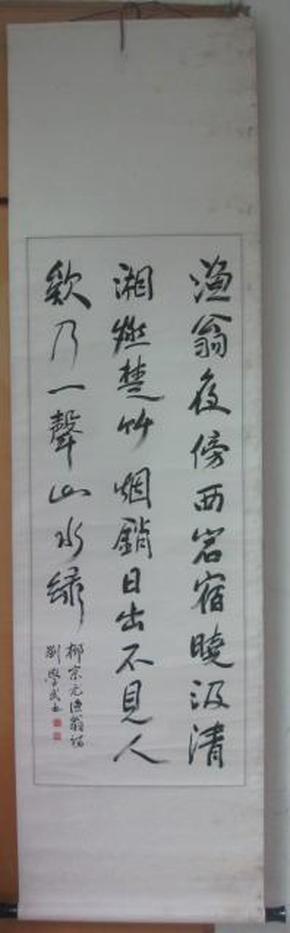 漁翁夜傍西岩宿曉汲清
湘燃楚竹烟銷日出不見人
欸乃一聲山水綠
柳宗元漁翁詩
劉學武書